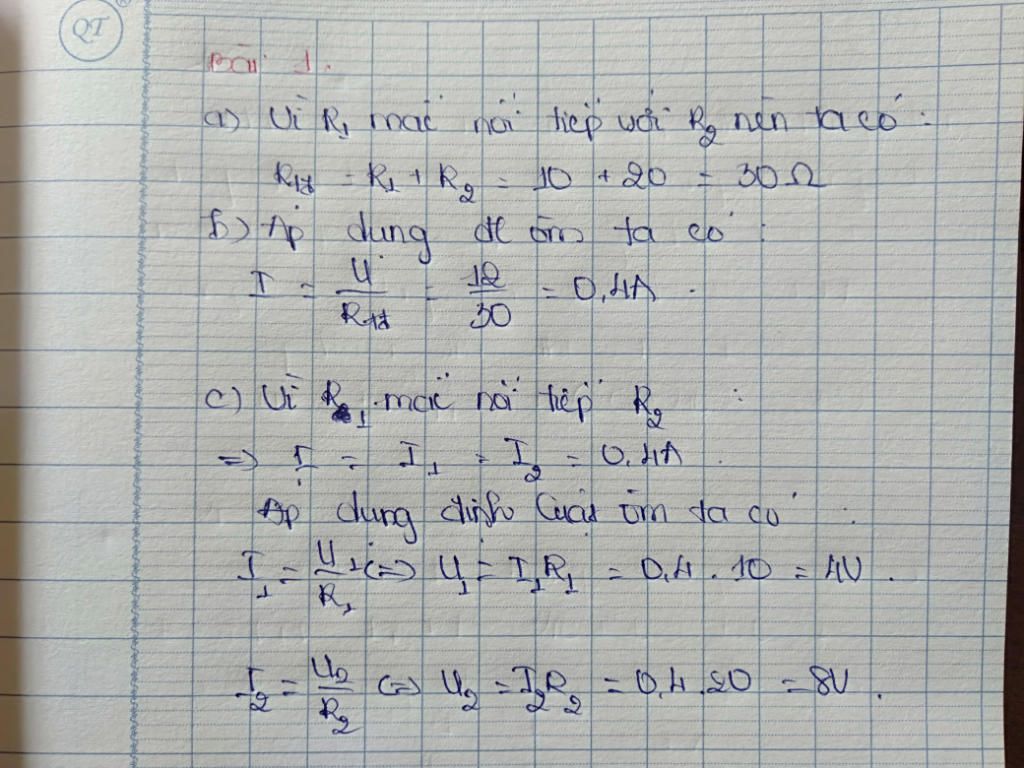 QT
Bài 1.
a) Vì R₁ mắc nối tiếp với R₂ nên ta có :
Rtđ = R₁ + R₂ = 10 + 20 = 30Ω
b) Áp dụng ĐL ôm ta có :
I = U/Rtđ = 12/30 = 0,4A .
c) Vì R₁ mắc nối tiếp R₂ :
=> I = I₁ = I₂ = 0,4A .
Áp dụng định luật ôm ta có :
I₁ = U₁/R₁ <=> U₁ = I₁R₁ = 0,4 . 10 = 4V .
I₂ = U₂/R₂ <=> U₂ = I₂R₂ = 0,4 . 20 = 8V .